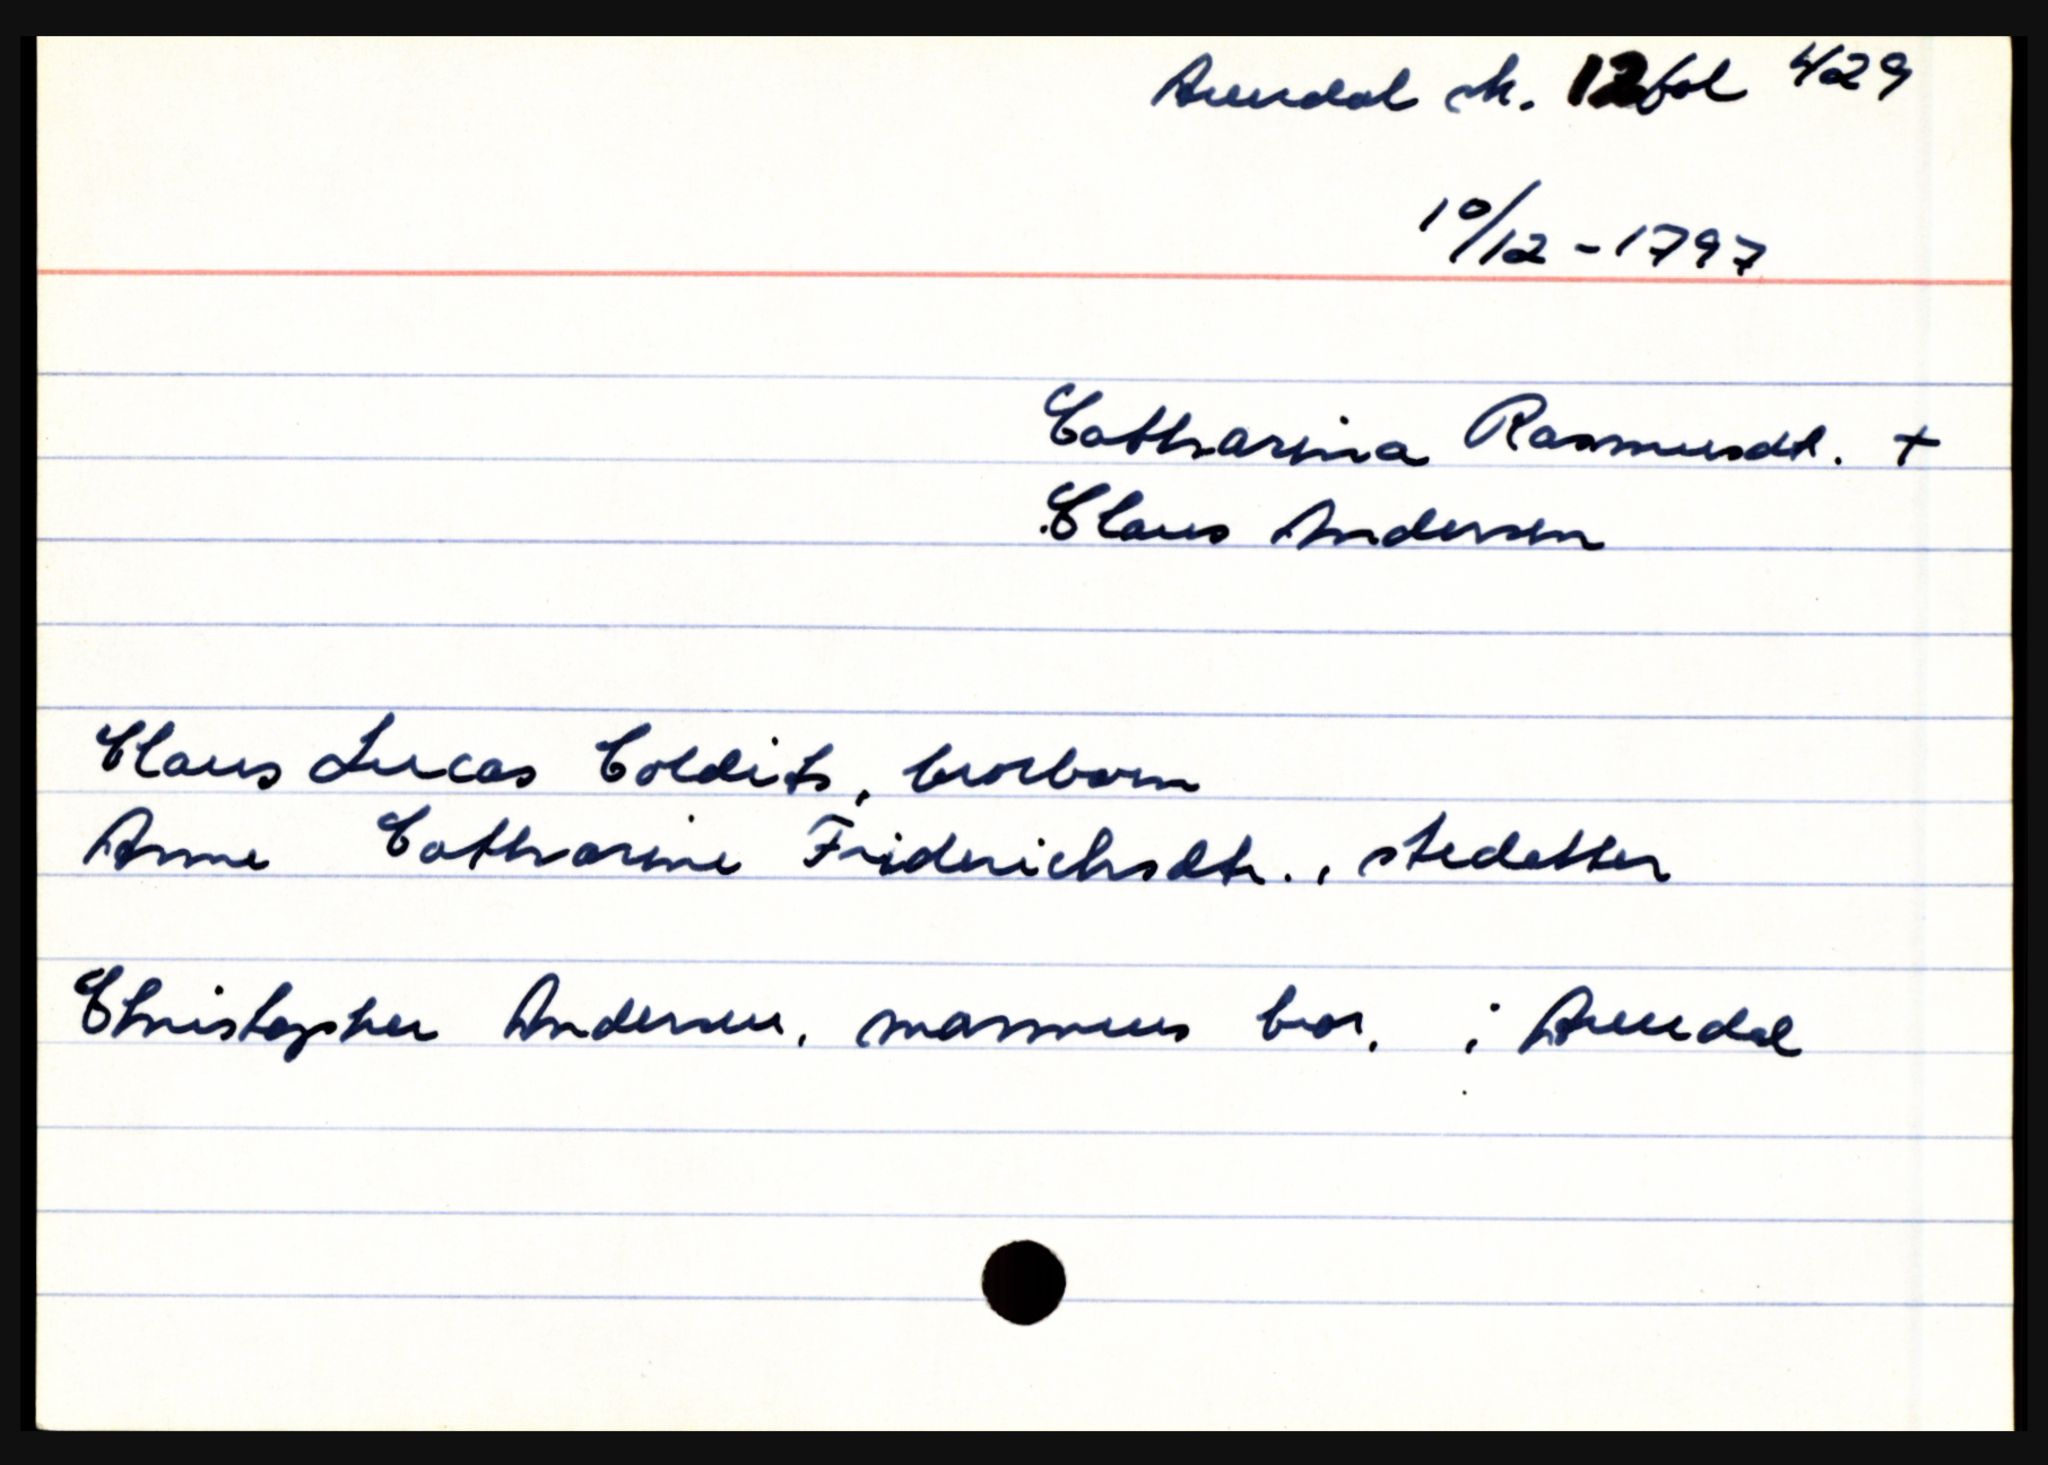 Arendal sk. 12 fol 429
10/12 - 1797
Catharina Rasmusdt. +
Claus Andersen
Claus Lucas Coldits, brorbarn
Anne Catharine Friderichsdtr., stedatter
Christopher Andersen, mannens bror, i Arendal